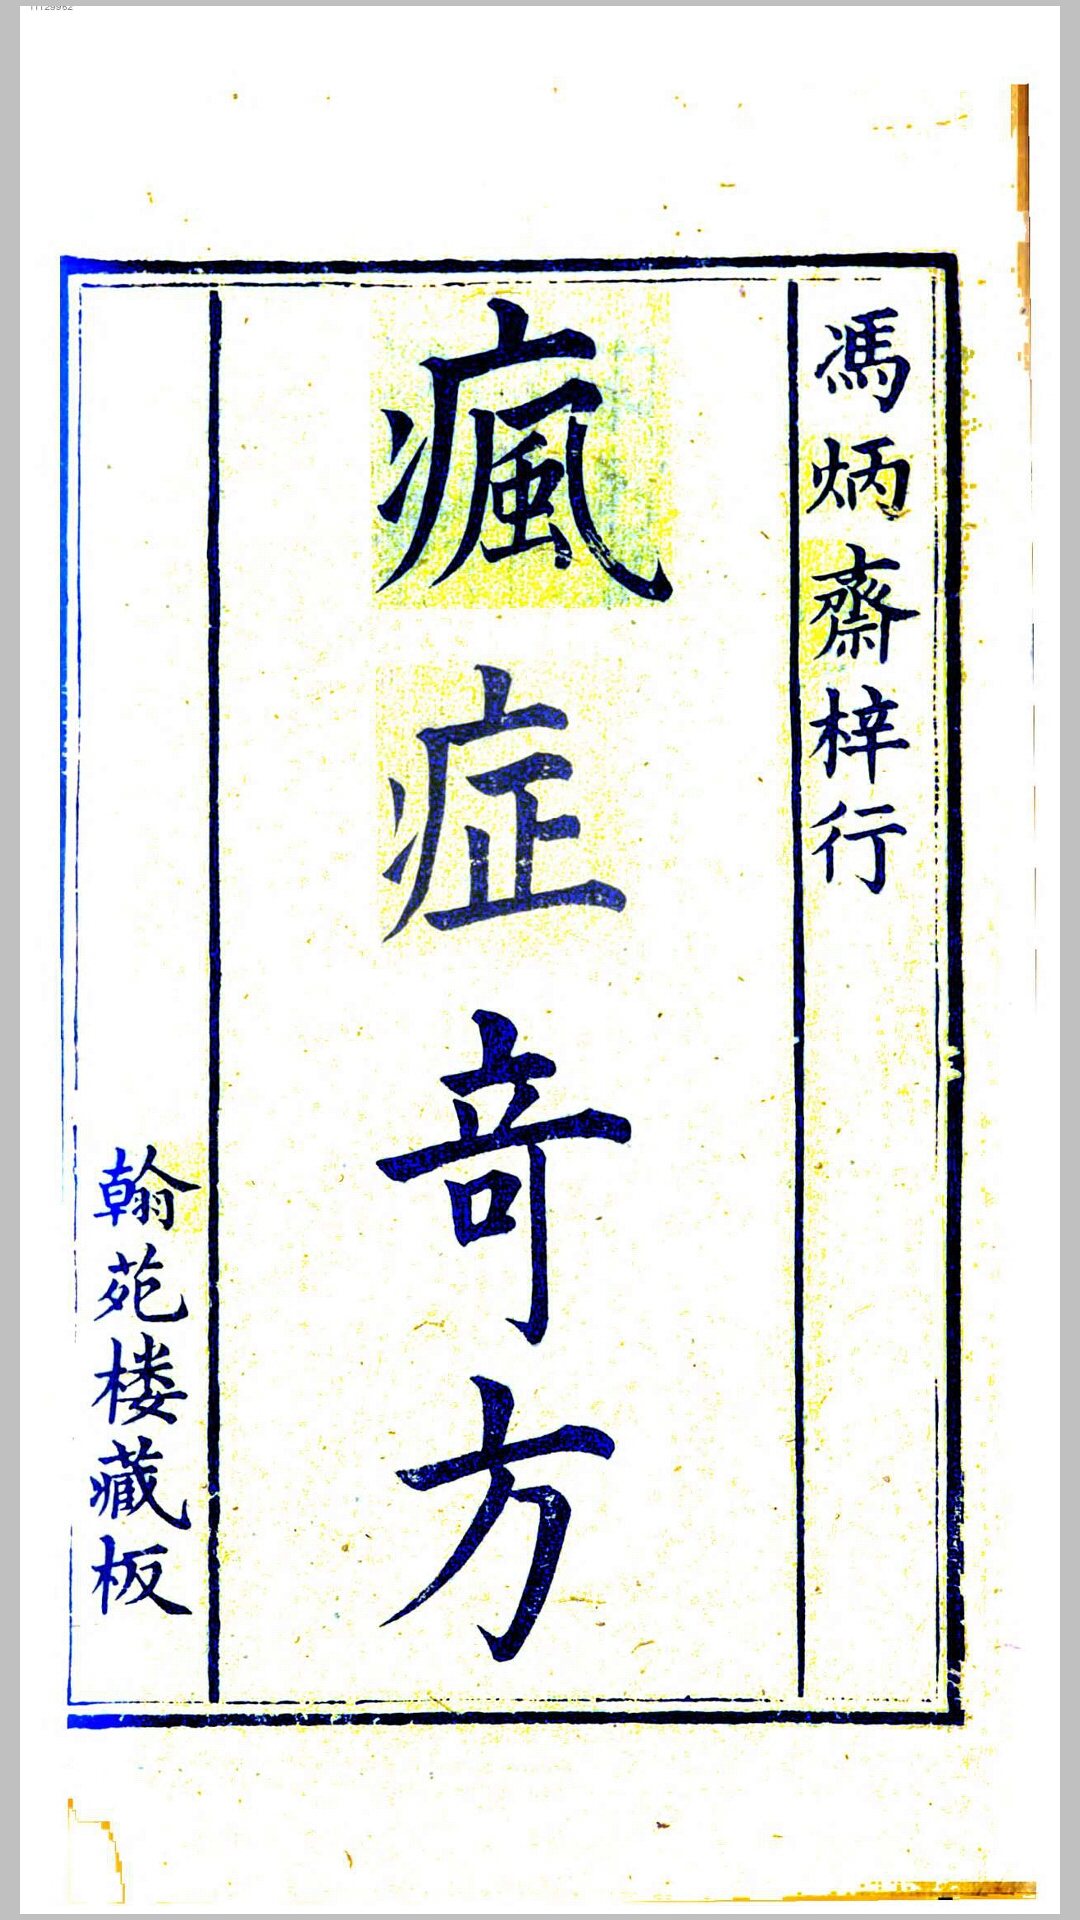 馮炳齋梓行
瘋症奇方
翰苑楼藏板